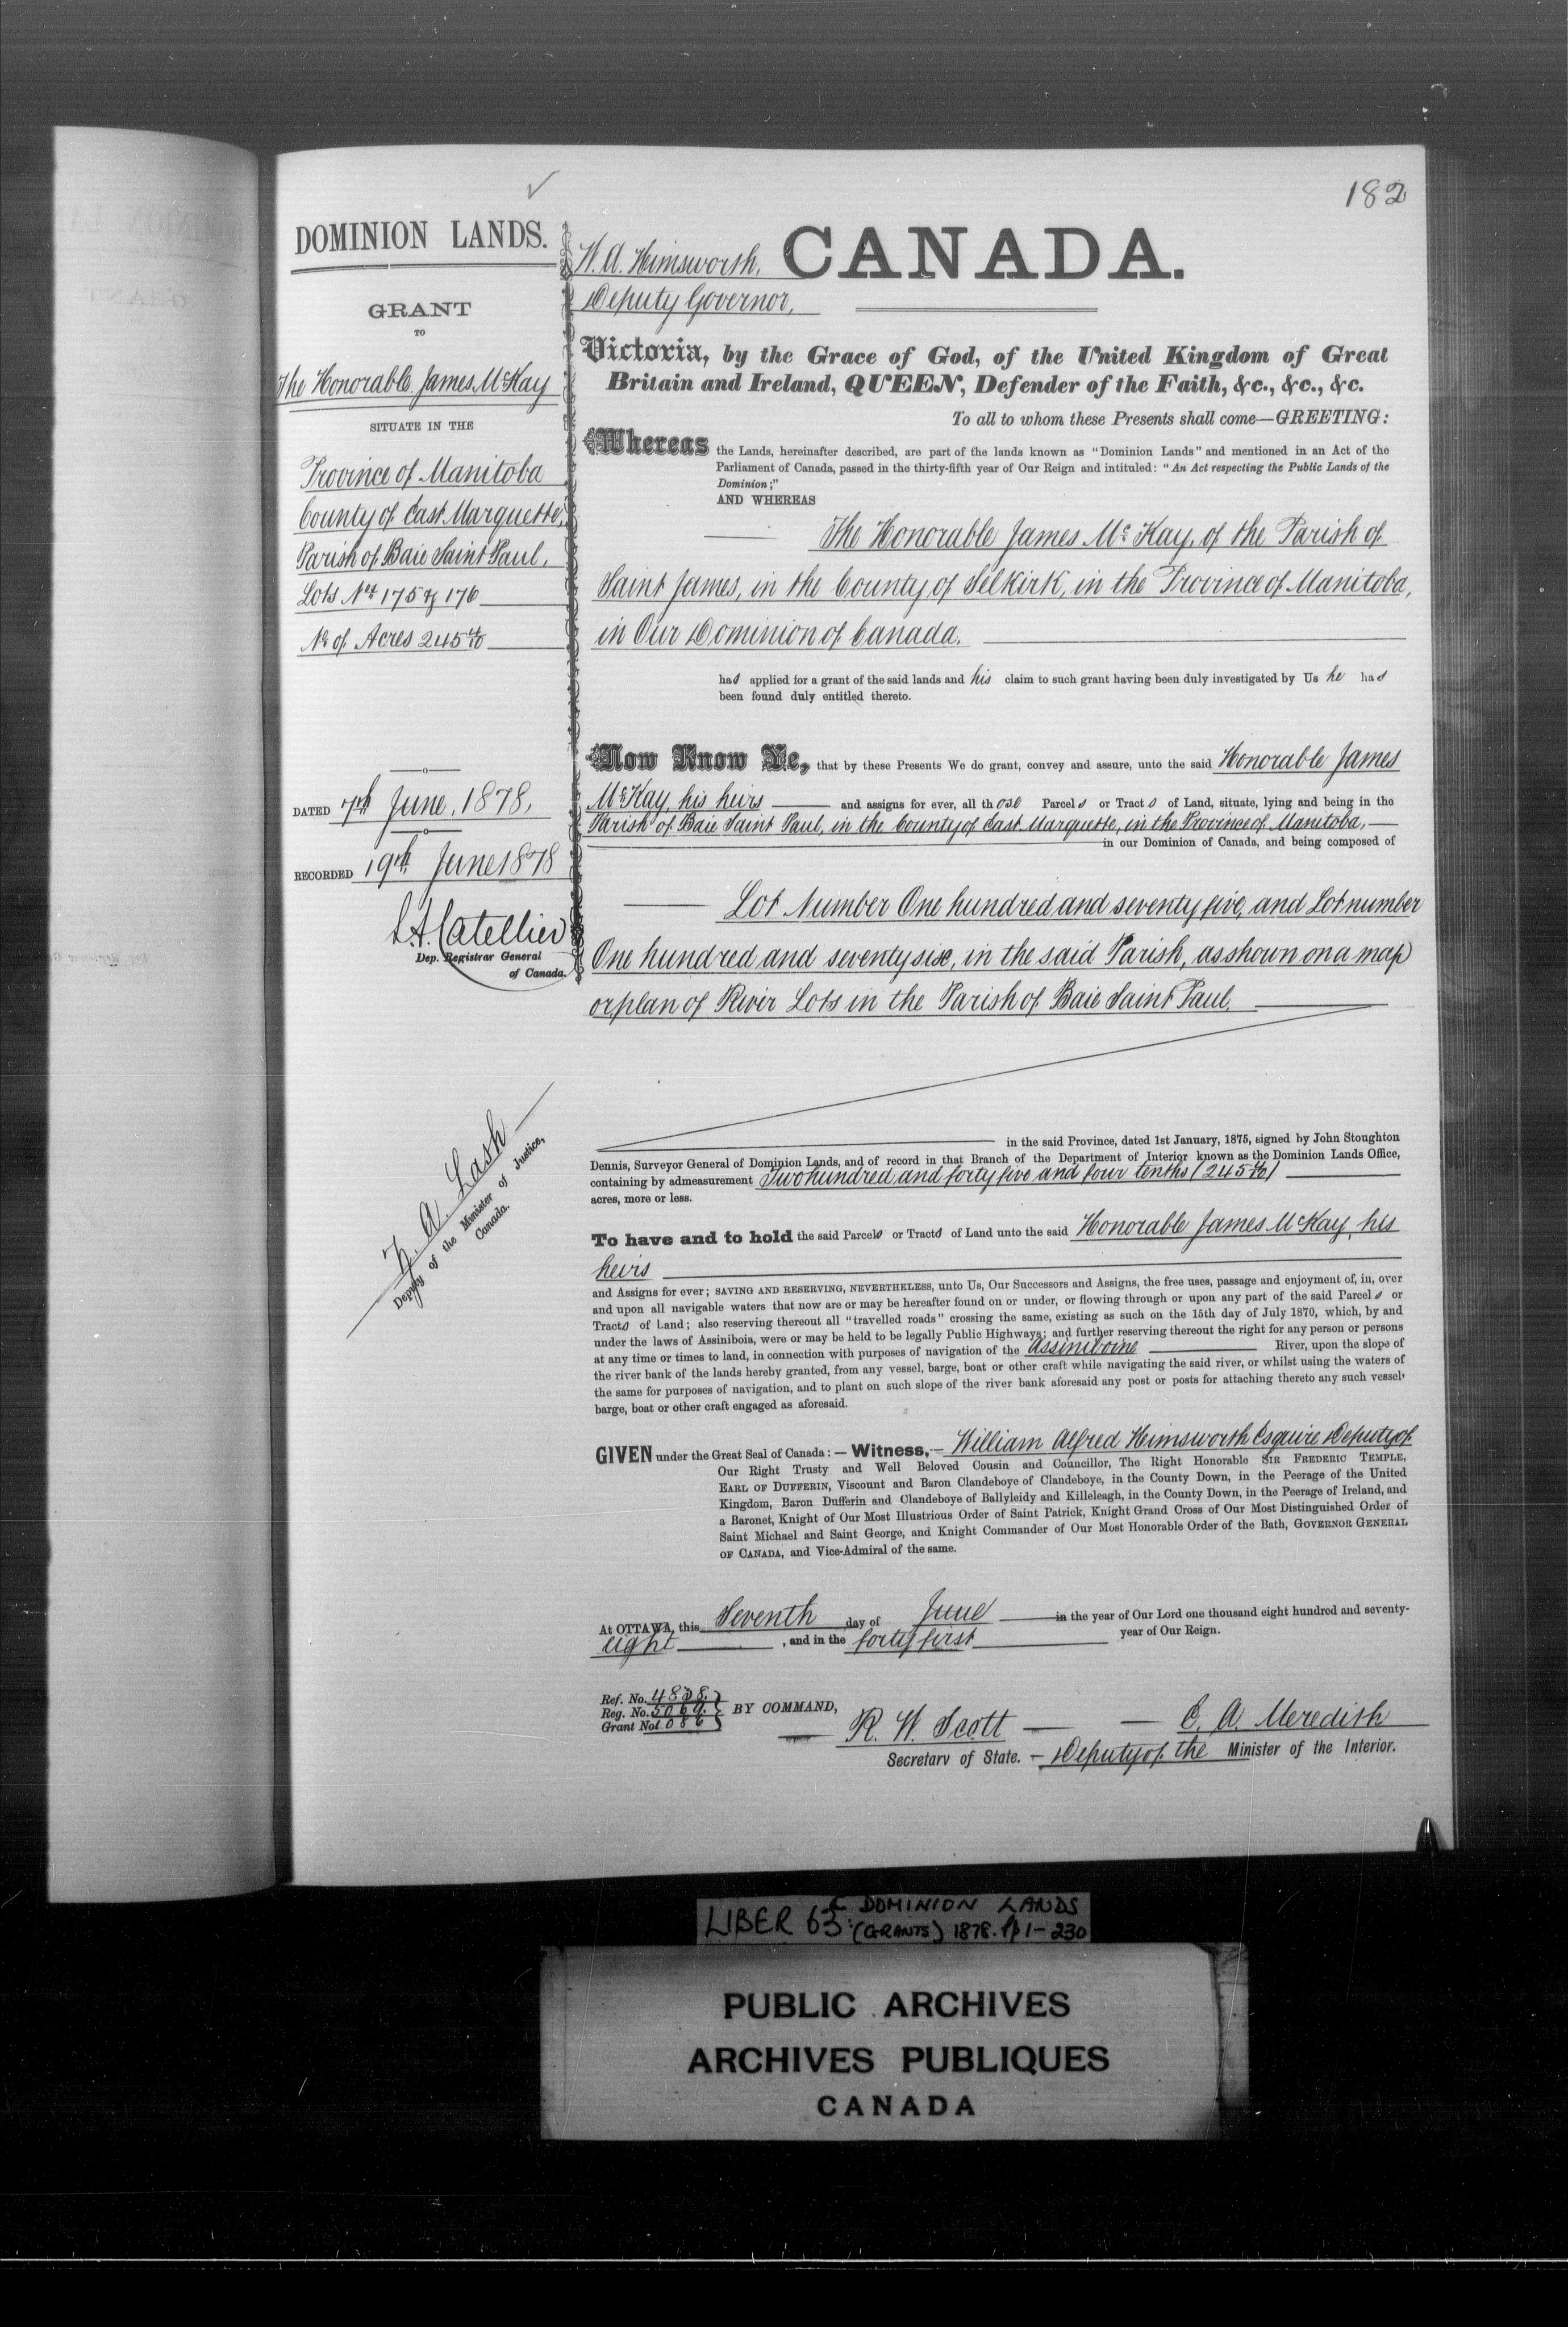 182
DOMINION LANDS.
GRANT
TO
The Honorable James McKay
SITUATE IN THE
Province of Manitoba
County of East Marquette,
Parish of Baie Saint Paul,
Lots Nos 175 & 176
No of Acres 245 4/10
DATED 7th June, 1878,
RECORDED 19th June 1878
L.A. Catellier
Dep. Registrar General
of Canada.
Z. A. Lash
Deputy of the Minister of Justice,
Canada.
W. A. Himsworth,
Deputy Governor,
CANADA.
Victoria, by the Grace of God, of the United Kingdom of Great
Britain and Ireland, QUEEN, Defender of the Faith, &c., &c., &c.
To all to whom these Presents shall come—GREETING:
Whereas the Lands, hereinafter described, are part of the lands known as "Dominion Lands" and mentioned in an Act of the
Parliament of Canada, passed in the thirty-fifth year of Our Reign and intituled: "An Act respecting the Public Lands of the
Dominion;"
AND WHEREAS
The Honorable James McKay, of the Parish of
Saint James, in the County of Selkirk, in the Province of Manitoba,
in Our Dominion of Canada.
had applied for a grant of the said lands and his claim to such grant having been duly investigated by Us he had
been found duly entitled thereto.
Now Know Ye, that by these Presents We do grant, convey and assure, unto the said Honorable James
McKay, his heirs and assigns for ever, all those Parcels or Tracts of Land, situate, lying and being in the
Parish of Baie Saint Paul, in the County of East Marquette, in the Province of Manitoba,
in our Dominion of Canada, and being composed of
Lot Number One hundred and seventy five, and Lot number
One hundred and seventy six, in the said Parish, as shown on a map
or plan of River Lots in the Parish of Baie Saint Paul,
in the said Province, dated 1st January, 1875, signed by John Stoughton
Dennis, Surveyor General of Dominion Lands, and of record in that Branch of the Department of Interior known as the Dominion Lands Office,
containing by admeasurement Two hundred and forty five and four tenths (245 4/10)
acres, more or less.
To have and to hold the said Parcels or Tracts of Land unto the said Honorable James McKay, his
heirs
and Assigns for ever; SAVING AND RESERVING, NEVERTHELESS, unto Us, Our Successors and Assigns, the free uses, passage and enjoyment of, in, over
and upon all navigable waters that now are or may be hereafter found on or under, or flowing through or upon any part of the said Parcels or
Tracts of Land; also reserving thereout all "travelled roads" crossing the same, existing as such on the 15th day of July 1870, which, by and
under the laws of Assiniboia, were or may be held to be legally Public Highways; and further reserving thereout the right for any person or persons
at any time or times to land, in connection with purposes of navigation of the Assiniboine River, upon the slope of
the river bank of the lands hereby granted, from any vessel, barge, boat or other craft while navigating the said river, or whilst using the waters of
the same for purposes of navigation, and to plant on such slope of the river bank aforesaid any post or posts for attaching thereto any such vessel,
barge, boat or other craft engaged as aforesaid.
GIVEN under the Great Seal of Canada:—Witness,— William Alfred Himsworth Esquire Deputy of
Our Right Trusty and Well Beloved Cousin and Councillor, The Right Honorable SIR FREDERIC TEMPLE,
EARL OF DUFFERIN, Viscount and Baron Clandeboye of Clandeboye, in the County Down, in the Peerage of the United
Kingdom, Baron Dufferin and Clandeboye of Ballyleidy and Killeleagh, in the County Down, in the Peerage of Ireland, and
a Baronet, Knight of Our Most Illustrious Order of Saint Patrick, Knight Grand Cross of Our Most Distinguished Order of
Saint Michael and Saint George, and Knight Commander of Our Most Honorable Order of the Bath, GOVERNOR GENERAL
OF CANADA, and Vice-Admiral of the same.
At OTTAWA, this Seventh day of June in the year of Our Lord one thousand eight hundred and seventy-
eight, and in the forty first year of Our Reign.
Ref. No.
Reg. No. 5069.
Grant No. 1086
BY COMMAND,
R. W. Scott C. A. Meredith
Secretary of State. – Deputy of the Minister of the Interior.
LIBER 63: C DOMINION LANDS
(GRANTS) 1878. pp 1-230
PUBLIC ARCHIVES
ARCHIVES PUBLIQUES
CANADA